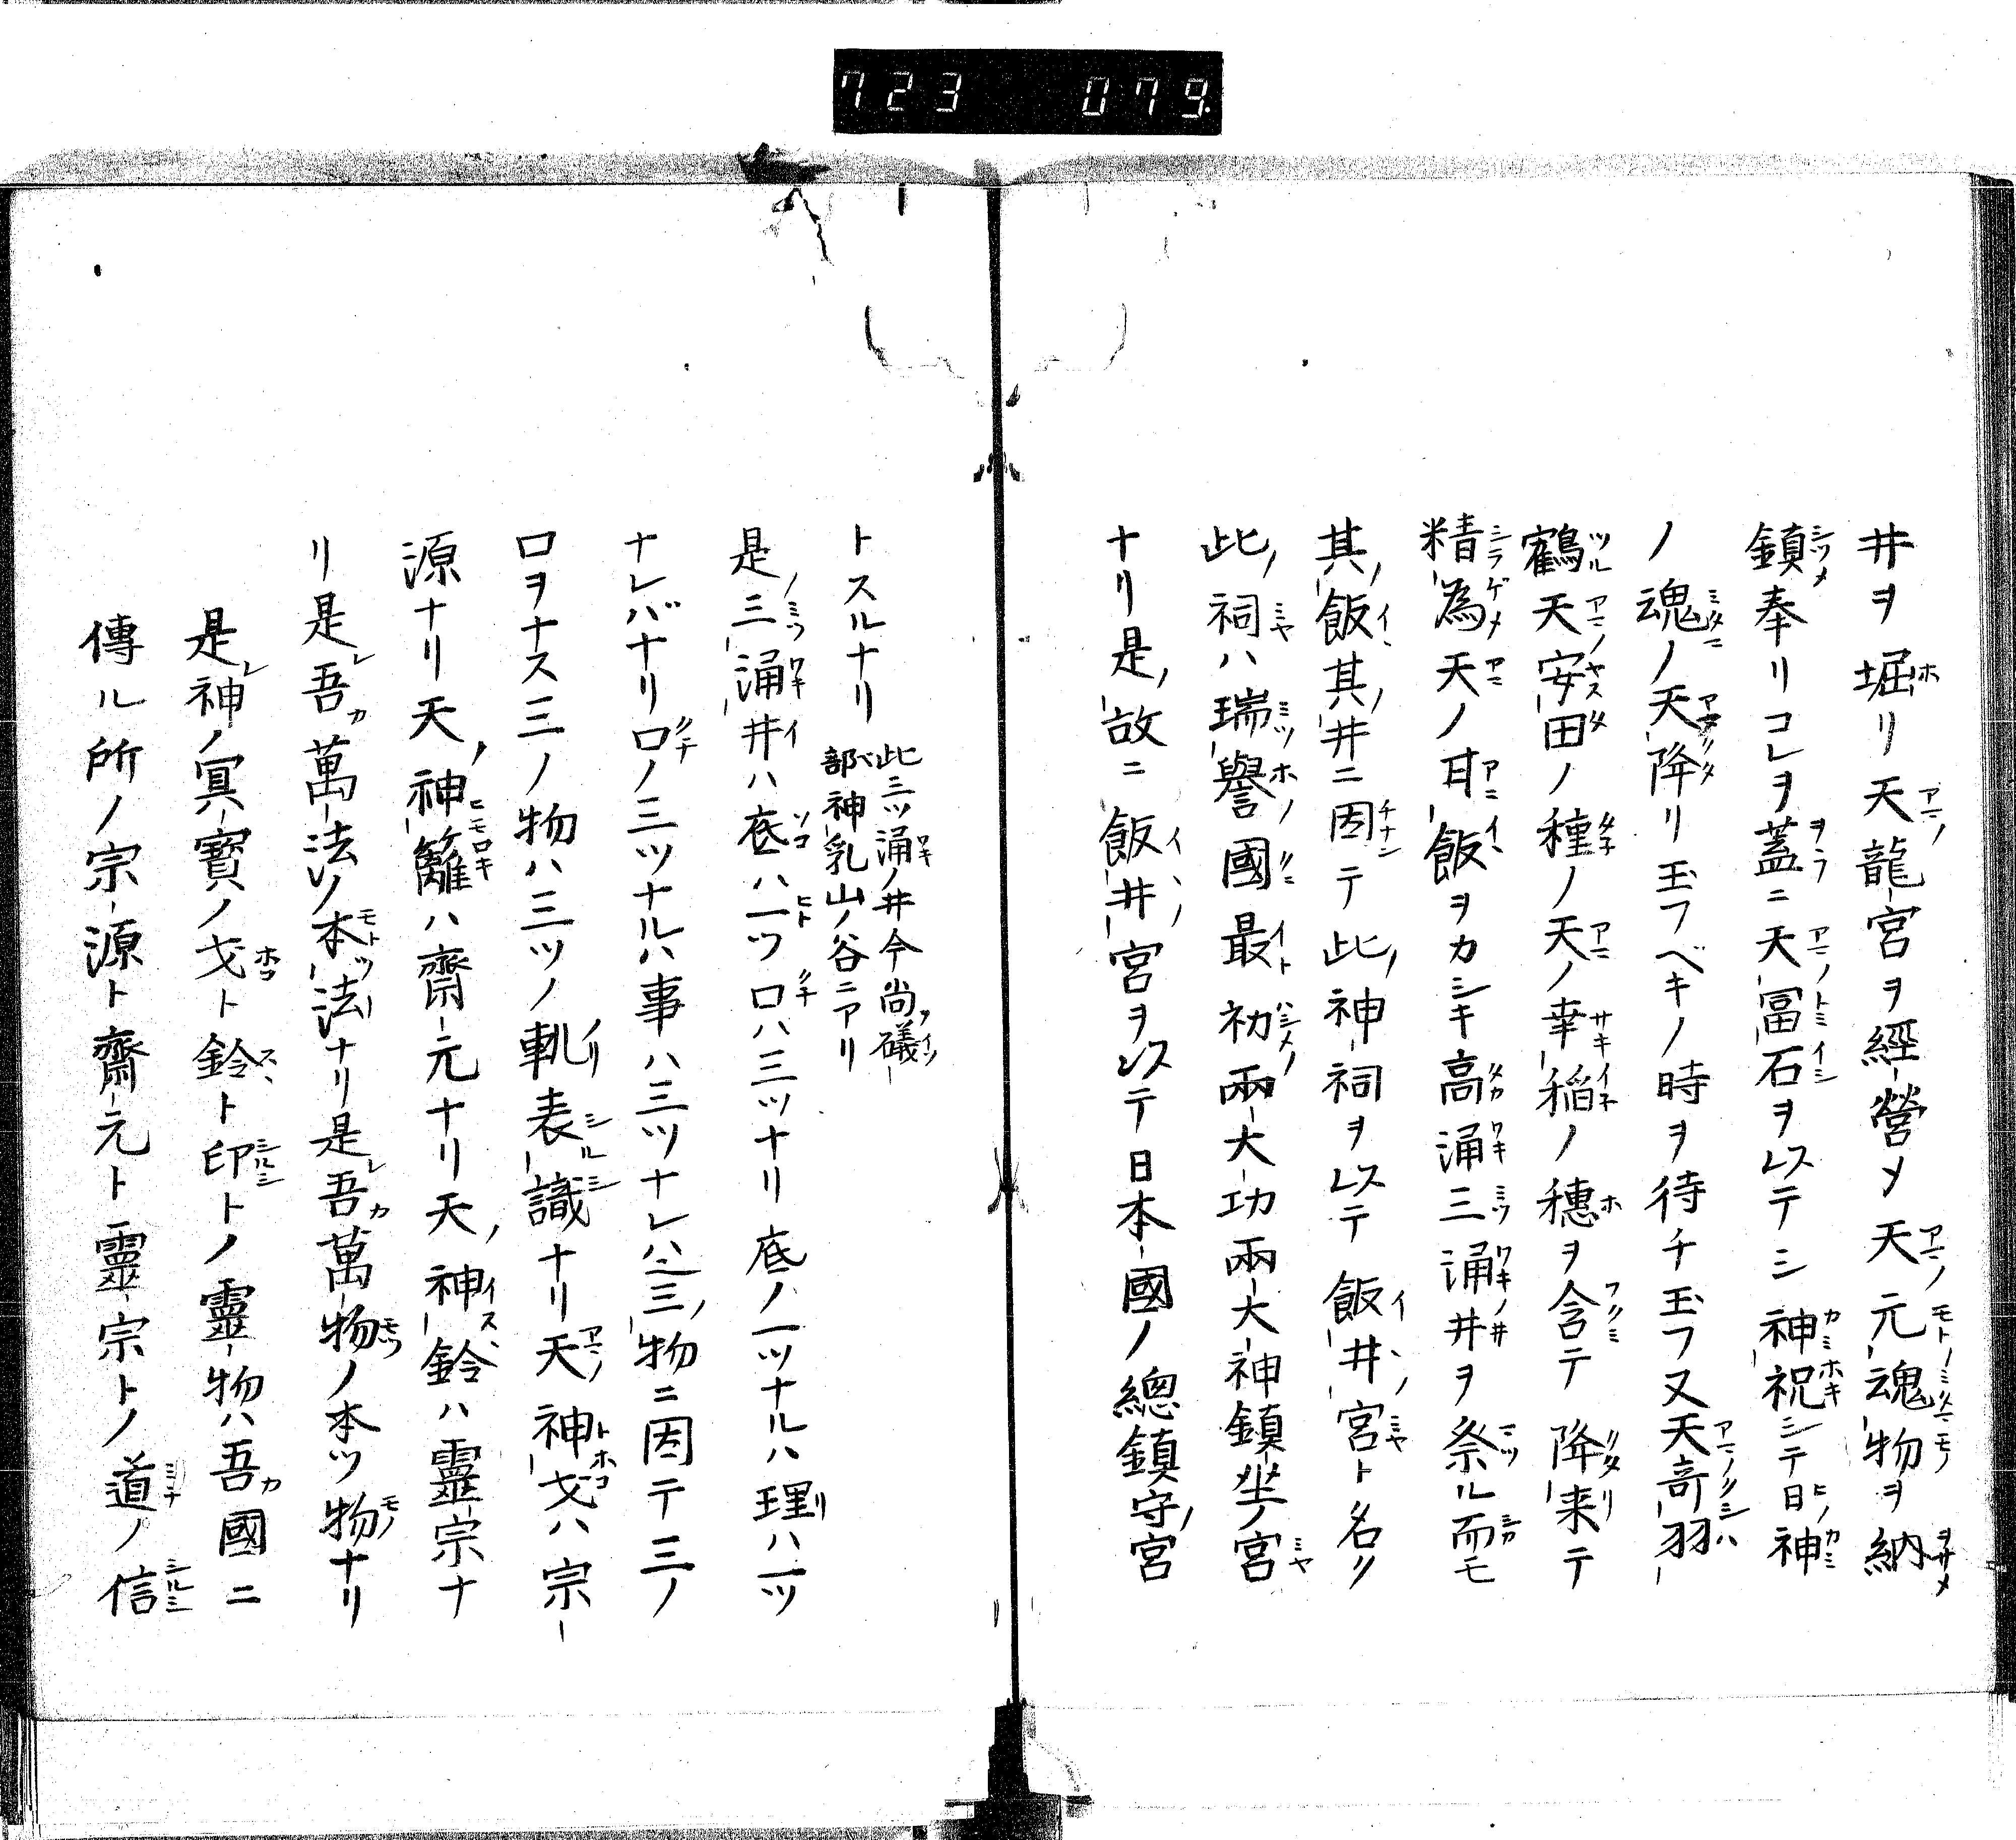 723 079.
井ヲ堀リ天龍宮ヲ經營メ天元魂物ヲ納
鎮奉リコレヲ蓋ニ天冨石ヲレステシ神祝シテ日神
ノ魂ノ天降リ玉フベキノ時ヲ待チ玉フ又天奇羽
鶴天安田ノ種ノ天ノ幸稲ノ穗ヲ含テ降来テ
精為天ノ甘飯ヲカシキ高涌三涌井ヲ祭ル而モ
其飯其井ニ因テ此神祠ヲレステ飯井宮ト名ク
此祠ハ瑞譽國最初兩大功兩大神鎮坐ノ宮
ナリ是故ニ飯井宮ヲレステ日本國ノ總鎮守宮
トスルナリ
此三ツ涌ノ井今尚礒
部神乳山ノ谷ニアリ
是三涌井ハ底ハ一ツ口ハ三ツナリ底ノ一ツナルハ理ハ一ツ
ナレバナリ口ノ三ツナルハ事ハ三ツナレハ三物ニ因テ三ノ
口ヲナス三ノ物ハ三ツノ軌表識ナリ天神戈ハ宗
源ナリ天神籬ハ齋元ナリ天神鈴ハ靈宗ナ
リ是吾萬法ノ本法ナリ是吾萬物ノ本ツ物ナリ
是神ノ冥寳ノ戈ト鈴ト印トノ靈物ハ吾國ニ
傳ル所ノ宗源ト齋元ト靈宗トノ道ノ信